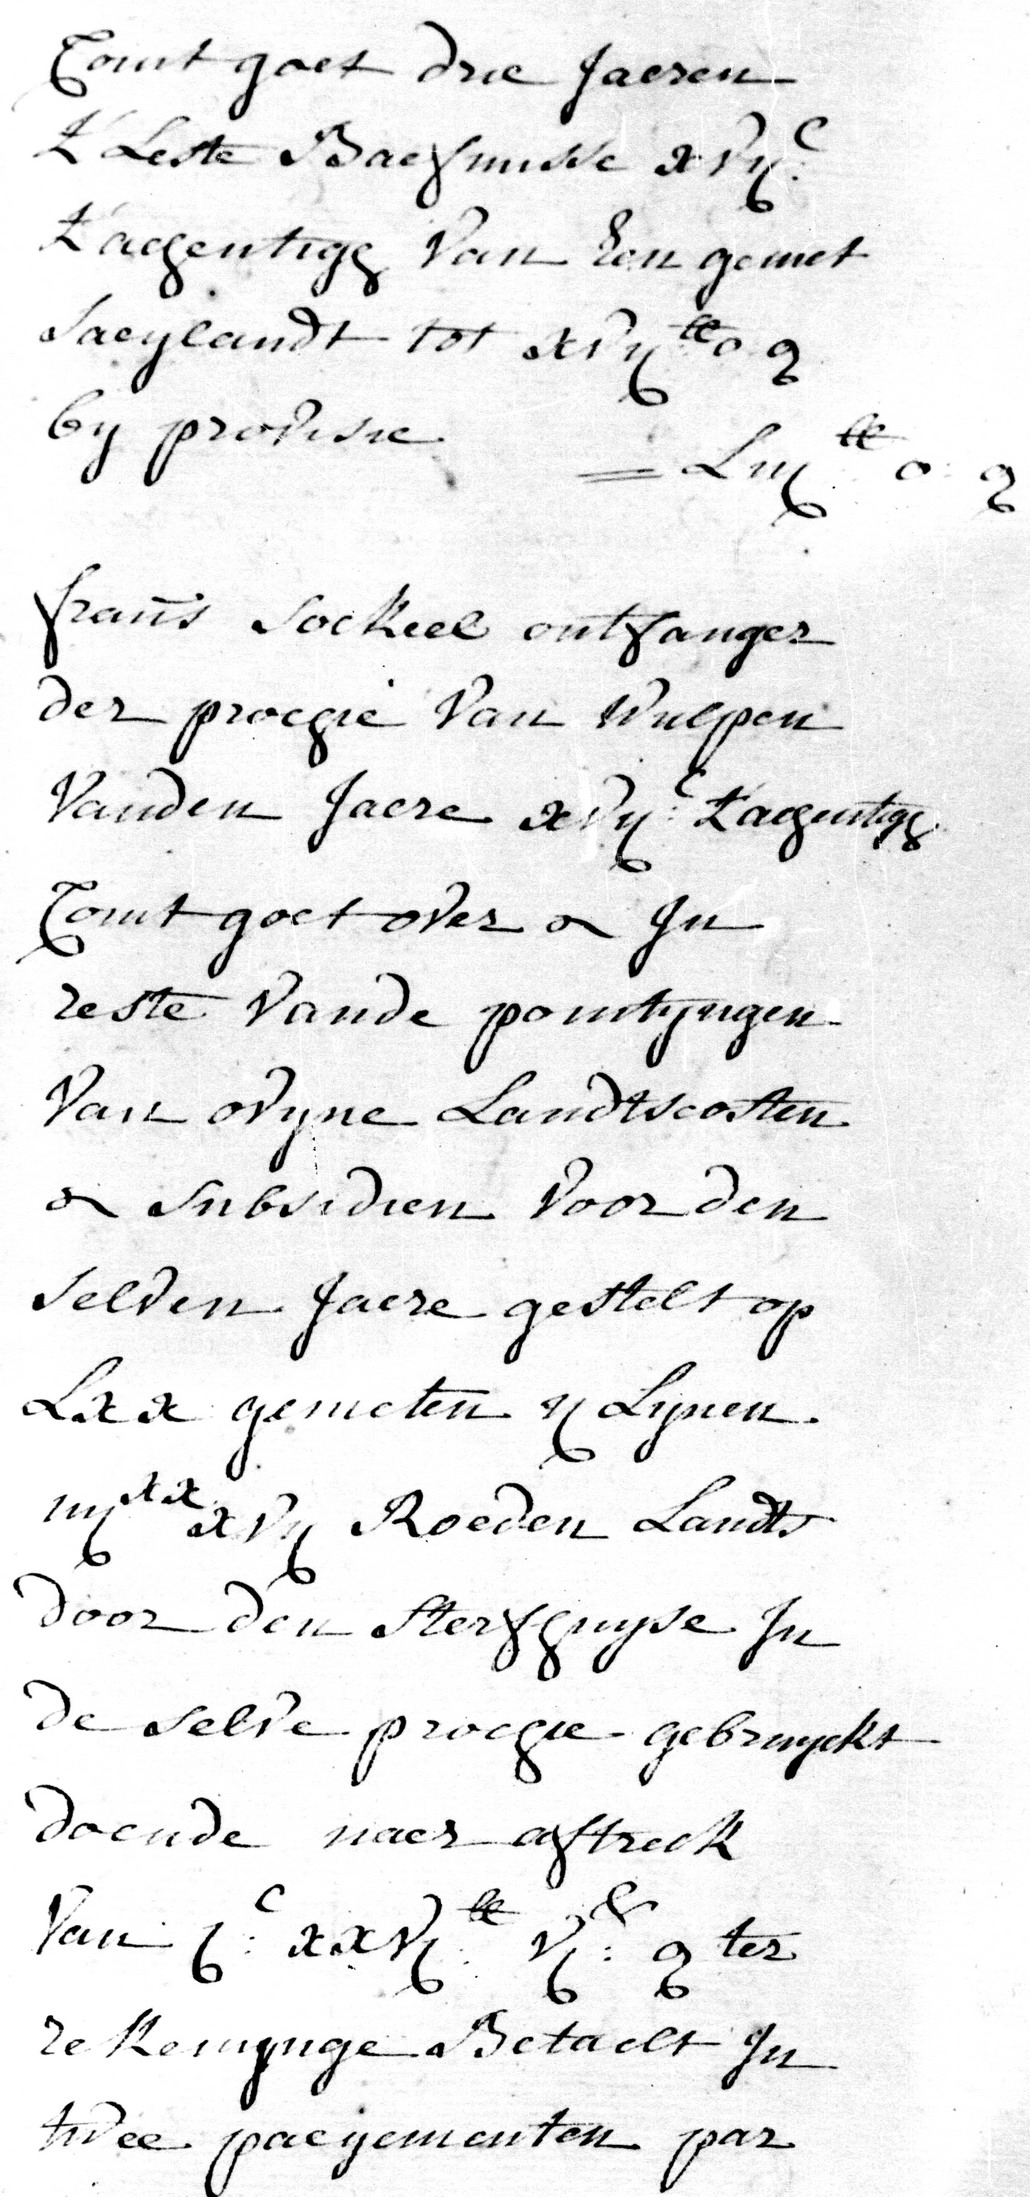 Comt goet drie Jaeren
t'Leste Baefmisse xvij C:
t'achentigh van Een gemet
saeylandt tot xvij lb o g
by provisie = Liij lb o g
frañs Sockeel ontfanger
der prochie van Wulpen
vanden Jaere xvij C: t'achentigh
Comt goet over & In
reste vande pointijngen
van ovijne Landtscosten
& subsidien voor den
selven Jaere gestelt op
Lxx gemeten ij Lijnen
iiij xx xvij Roeden Landts
door den sterfhuyse In
de selve prochie gebruyckt
doende naer aftreck
van j C: xxvj lb vj: g ter
rekenijnge Betaelt In
twee paeyementen par